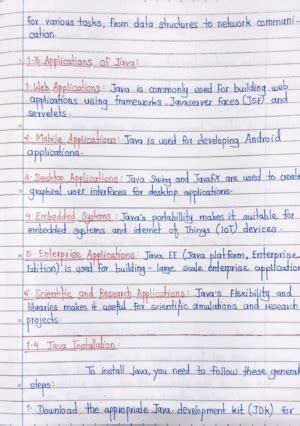 for various tasks, from data structures to network communi-
cation.
1.3 Applications of Java:
1. Web Applications: Java is commonly used for building web
applications using frameworks, Javaserver faces (JSF) and
servelets.
2. Mobile Applications: Java is used for developing Android
applications.
3. Desktop Applications: Java Swing and JavaFX are used to create
graphical user interfaces for desktop applications.
4. Embedded Systems: Java's portability makes it suitable for
embedded systems and iternet of Things (IoT) devices.
5. Enterprise Applications: Java EE (Java platform, Enterprise
Edition) is used for building - large scale enterprise application
6. Scientific and Research Applications: Java's flexibility and
libraries makes it useful for scientific simulations and research
projects.
1.4 Java Installation:
To install Java, you need to follow these general
steps:
1. Download the appropriate Java development kit (JDK) for